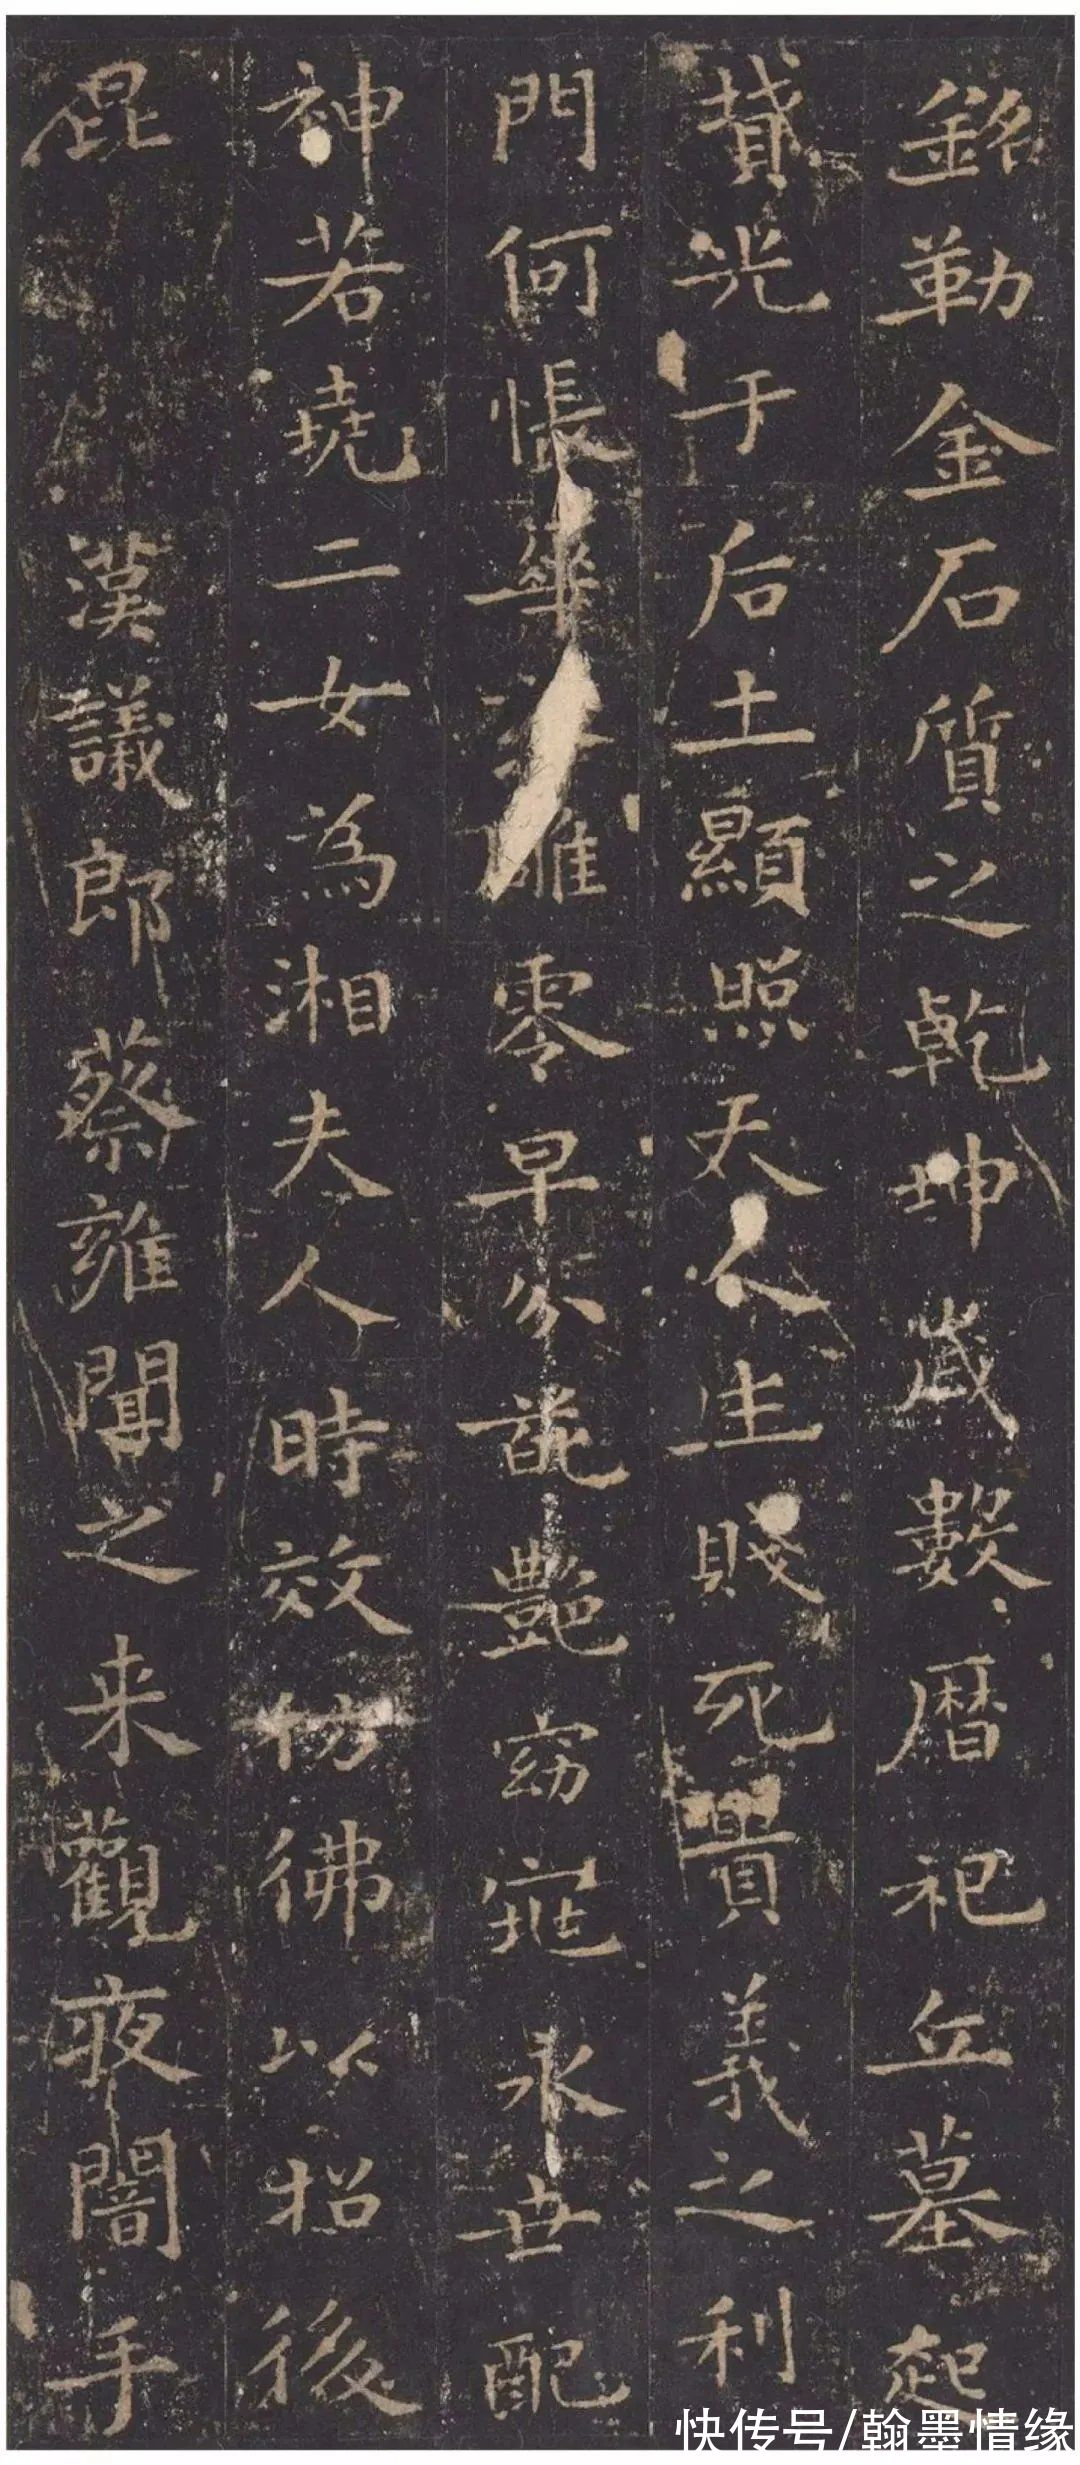 銘勒金石質之乾坤歲數曆祀丘墓起
墳光于后土顯照天人生賤死貴義之利
門何悵華落雕零早分葩艷窈窕永世配
神若堯二女為湘夫人時效仿彿以招後
昆 漢議郎蔡雍聞之来觀夜闇手
快传号/翰墨情缘